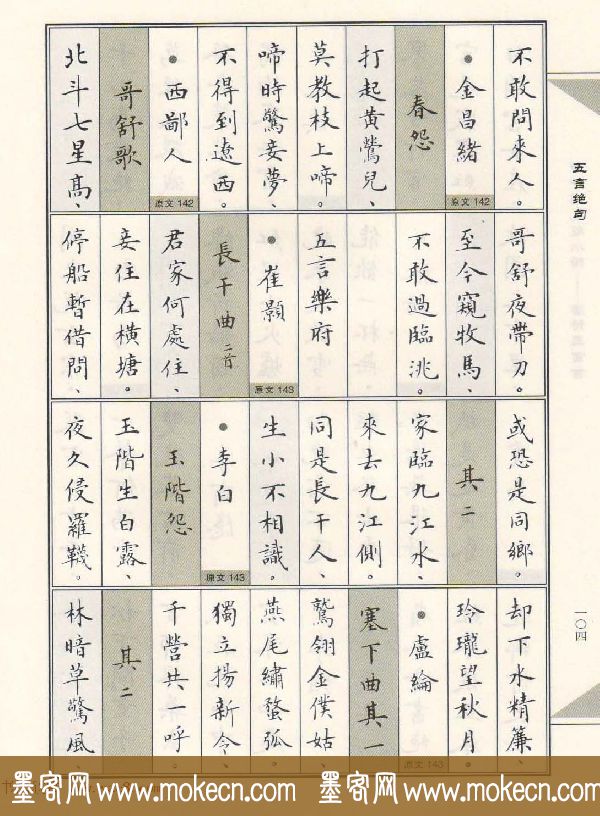 不敢問來人。
春怨
原文 142
●金昌緒
打起黃鶯兒、
莫教枝上啼。
啼時驚妾夢、
不得到遼西。
哥舒歌
原文 142
●西鄙人
北斗七星高、
哥舒夜帶刀。
至今窺牧馬、
不敢過臨洮。
五言樂府
長干曲 二首
原文 143
●崔顥
君家何處住、
妾住在橫塘。
停船暫借問、
或恐是同鄉。
其二
家臨九江水、
來去九江側。
同是長干人、
生小不相識。
玉階怨
原文 143
●李白
玉階生白露、
夜久侵羅韈。
却下水精簾、
玲瓏望秋月。
塞下曲其一
原文 143
●盧綸
鷲翎金僕姑、
燕尾繡蝥弧。
獨立揚新令、
千營共一呼。
其二
林暗草驚風、
五言绝句
一〇四
墨客网 www.mokecn.com 墨客网 www.mokecn.com